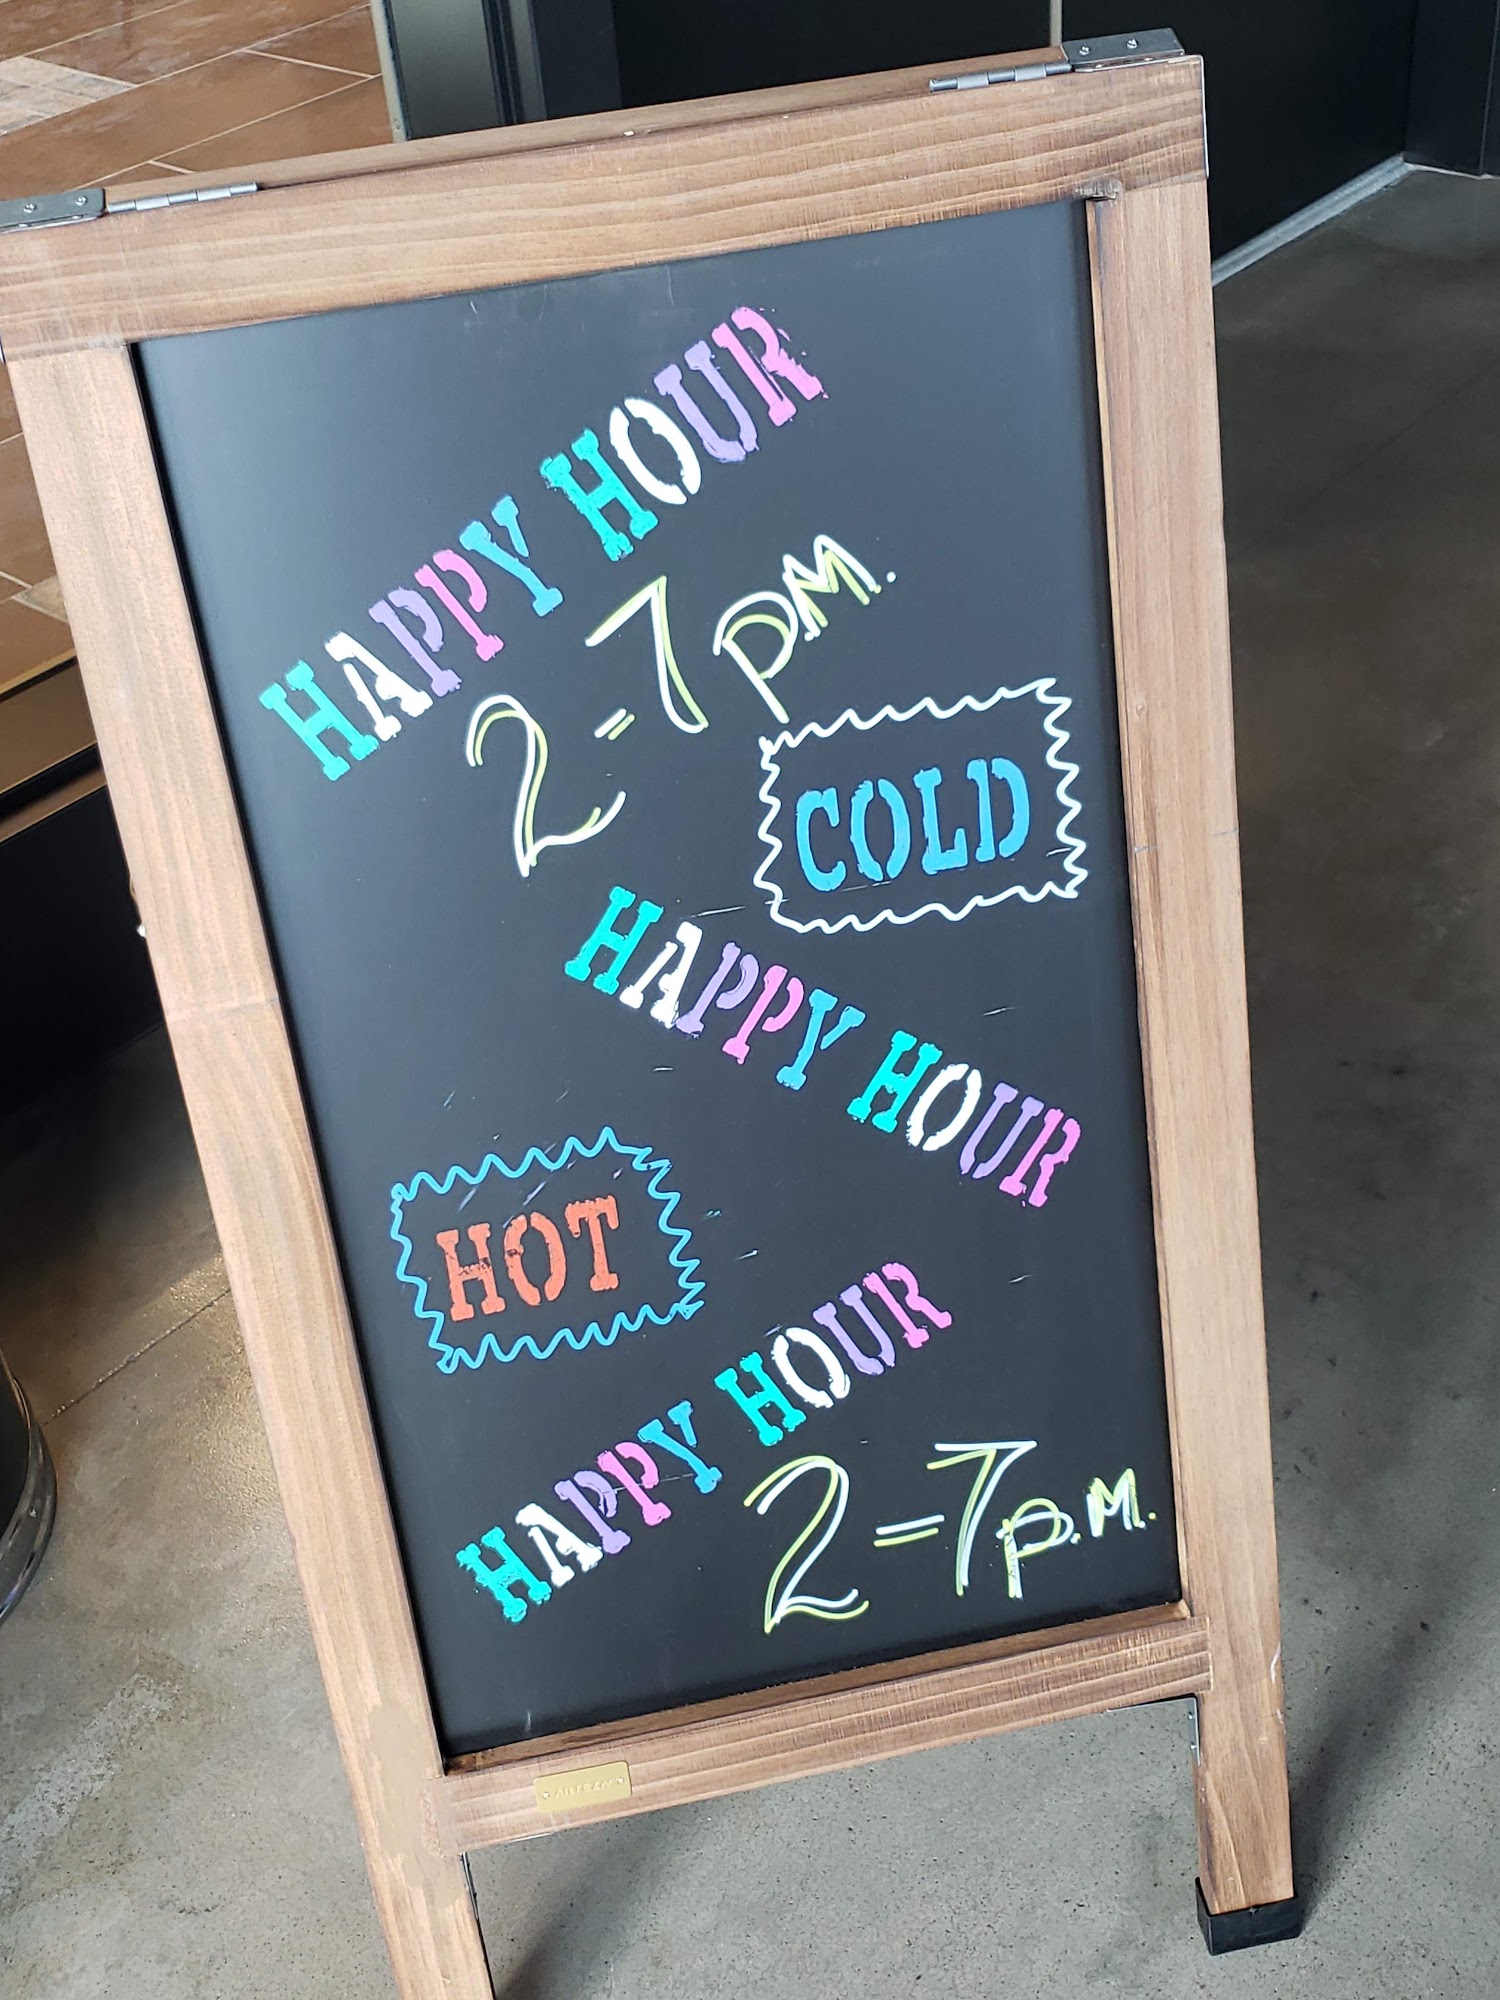 HAPPY HOUR
2-7 P.M.
COLD
HAPPY HOUR
HOT
HAPPY HOUR
2-7 P.M.
ARTEZA